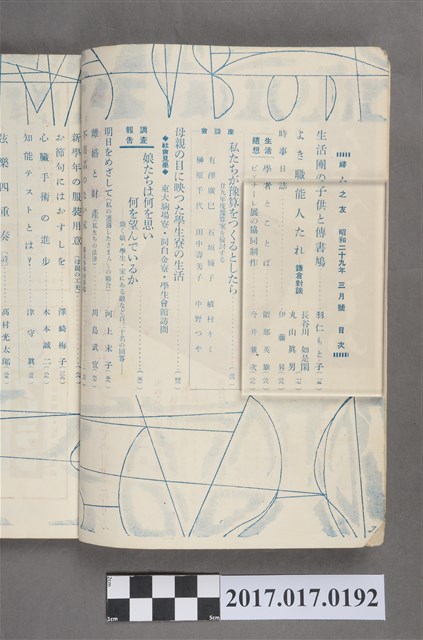 婦人之友 昭和二十九年 三月號 目次
生活團の子供と傳書鳩 羽仁もと子
よき職能人たれ 鎌倉對談 長谷川如是閑 丸山眞男
時事日誌 伊藤昇
生活隨想
學者とことば
ピノチオ展の協同制作 今井兼次
座談會
私たちが豫算をつくるとしたら
有澤廣巳 植村
榊原千代 田中壽美子 中野つや
母親の目に映つた學生寮の生活
◆社會見學◆ 東大駒場寮・阿白金寮・學生會館訪問
調査報告
娘たちは何を思い
何を望んでいるか
明日をめざして 河上末子
離婚と財産 (私たちの法律) 川島武宜
新學年の服裝用意
お節句にはおすしを 澤崎梅子
心臟手術の進步 木本誠二
知能テストとは? 津守眞
弦樂四重奏 (詩) 高村光太郎
2cm
3cm
5cm
2017.017.0192